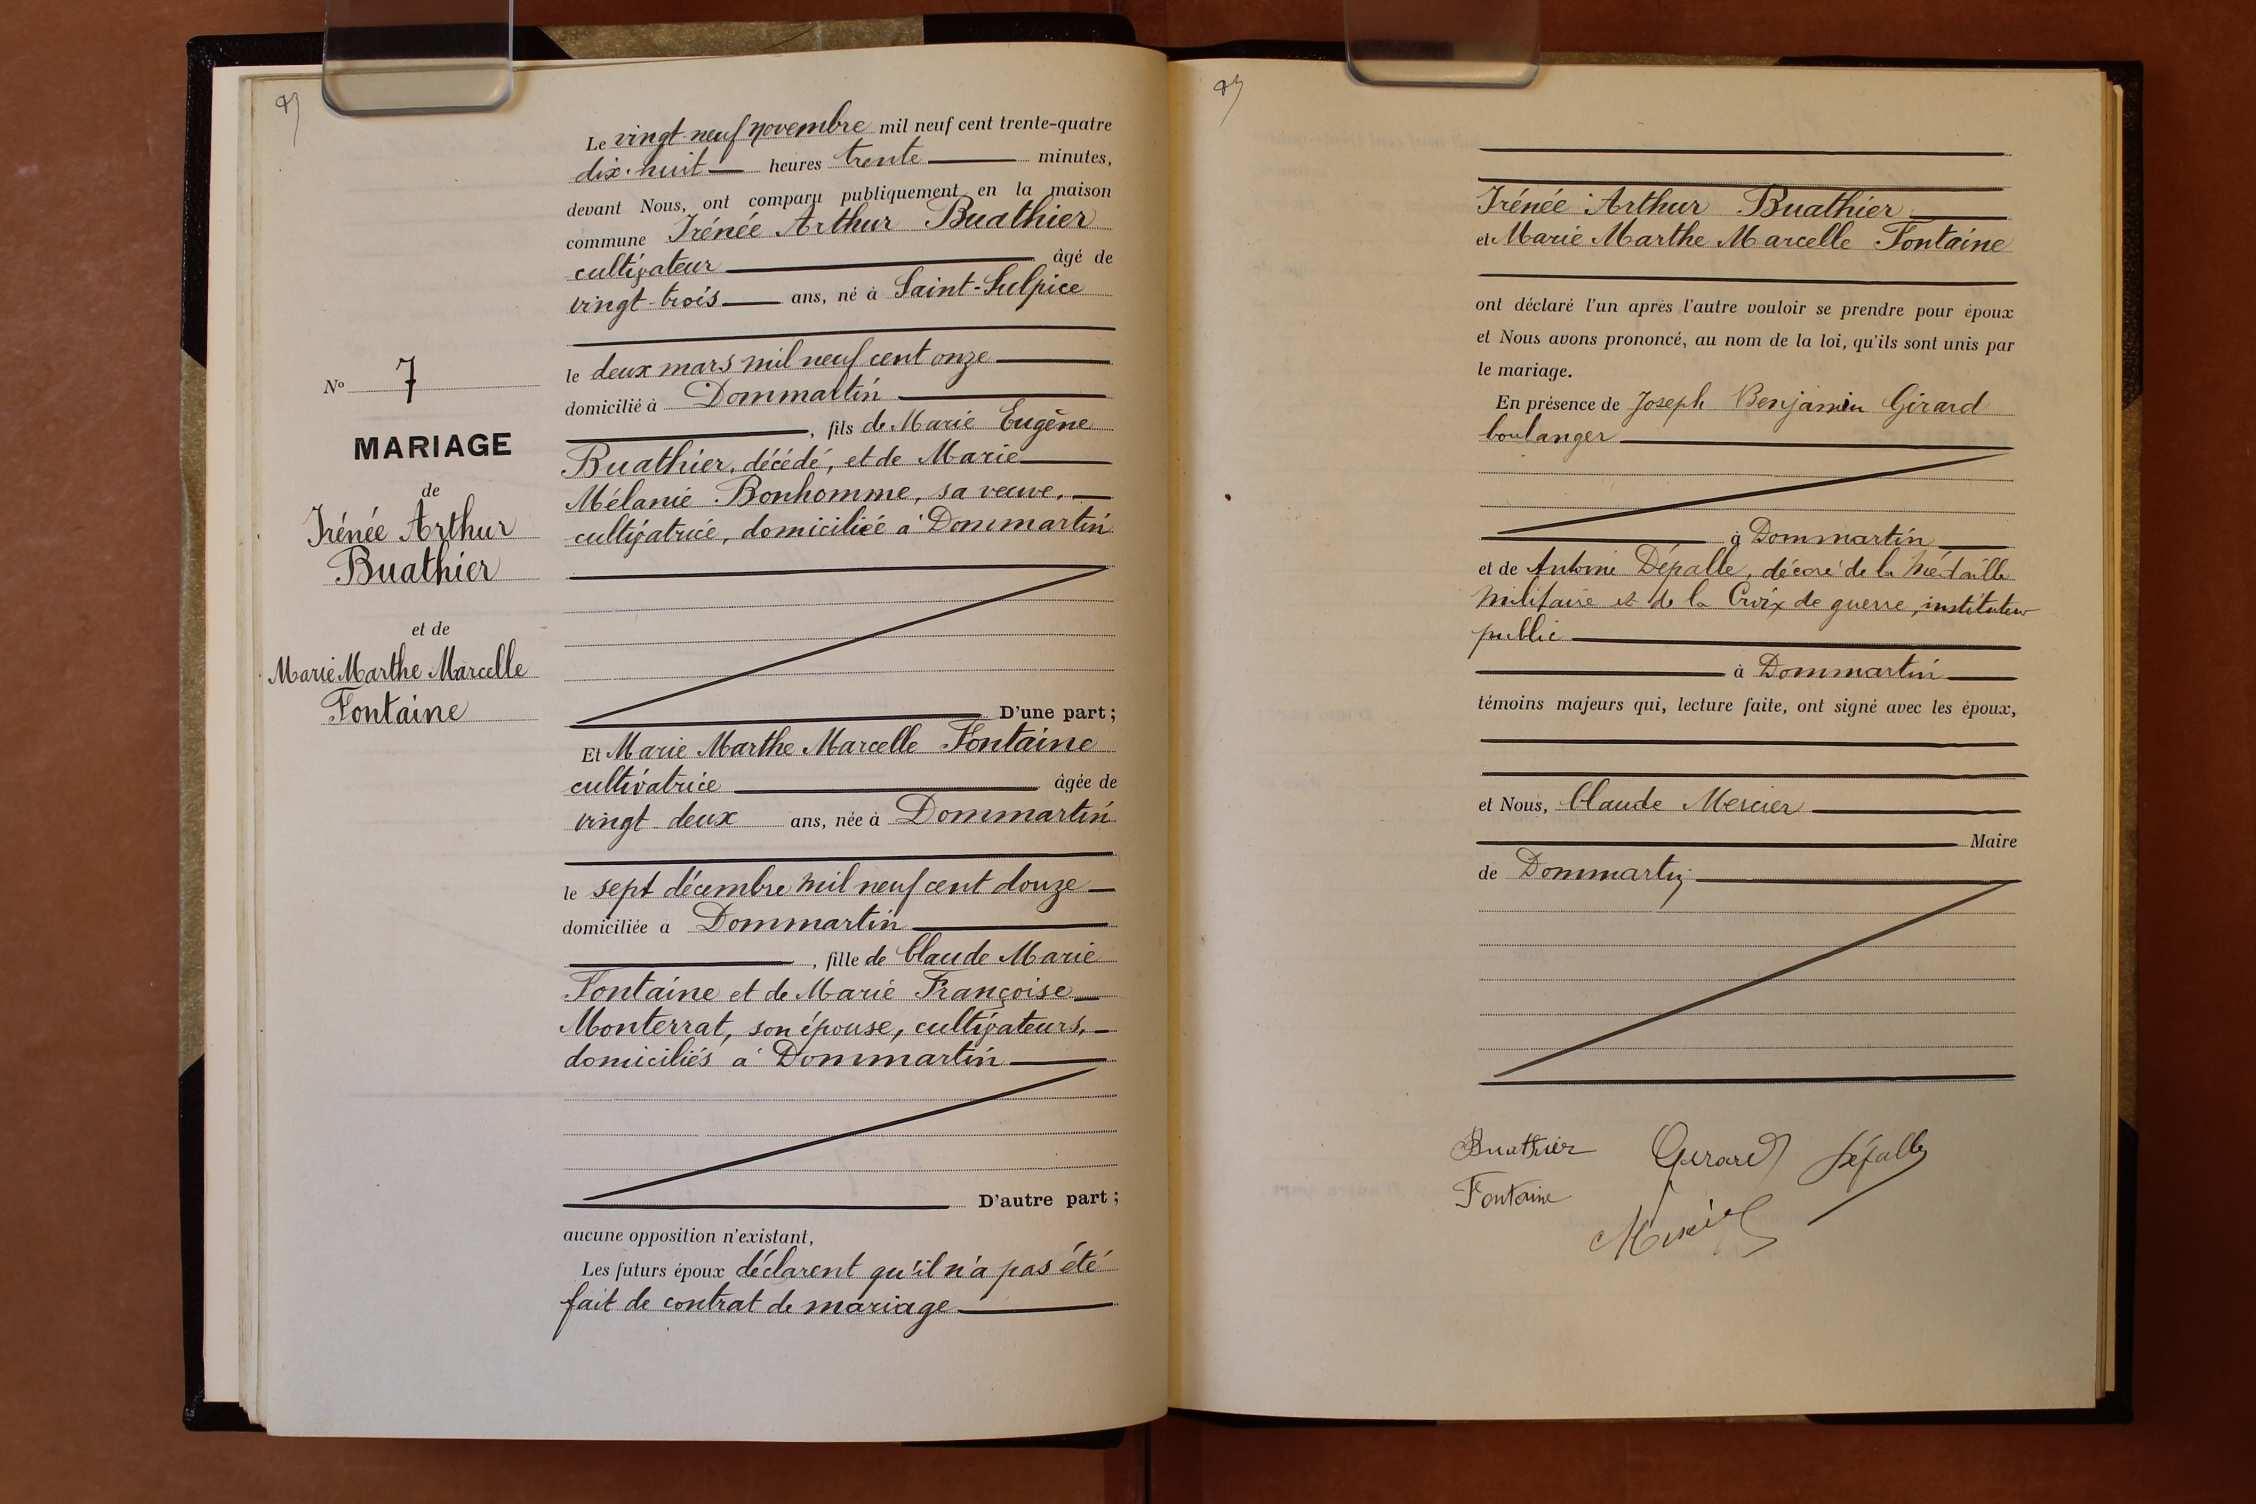 Le vingt-neuf novembre mil neuf cent trente-quatre
dix-huit heures trente minutes,
devant Nous, ont comparu publiquement en la maison
commune Irénée Arthur Buathier
cultivateur âgé de
vingt-trois ans, né à Saint-Sulpice
le deux mars mil neuf cent onze
domicilié à Dommartin
, fils de Marie Eugène
Buathier, décédé, et de Marie
Mélanie Bonhomme, sa veuve,
cultivatrice, domiciliée à Dommartin
D'une part ;
Et Marie Marthe Marcelle Fontaine
cultivatrice âgée de
vingt-deux ans, née à Dommartin
le sept décembre mil neuf cent douze
domiciliée à Dommartin
, fille de Claude Marie
Fontaine et de Marie Françoise
Monterrat, son épouse, cultivateurs,
domiciliés à Dommartin
D'autre part ;
aucune opposition n'existant,
Les futurs époux déclarent qu'il n'a pas été
fait de contrat de mariage
No 7
MARIAGE
de
Irénée Arthur
Buathier
et de
Marie Marthe Marcelle
Fontaine
Irénée Arthur Buathier
et Marie Marthe Marcelle Fontaine
ont déclaré l'un après l'autre vouloir se prendre pour époux
et Nous avons prononcé, au nom de la loi, qu'ils sont unis par
le mariage.
En présence de Joseph Benjamin Girard
boulanger
à Dommartin
et de Antoine Dépalle, décoré de la Médaille
Militaire et de la Croix de guerre, instituteur
public
à Dommartin
témoins majeurs qui, lecture faite, ont signé avec les époux,
et Nous, Claude Mercier
Maire
de Dommartin
Buathier Girard Dépalle
Fontaine
Mercier